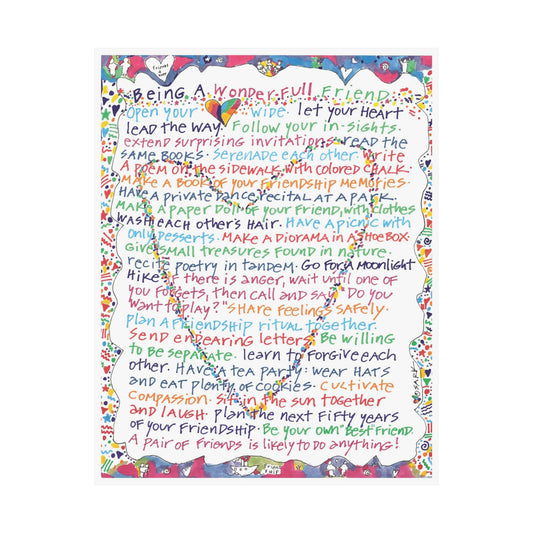 Being A Wonder-Full Friend
Open your WIDE. let your Heart
lead the way. Follow your in-sights.
extend surprising invitations. read the
same Books. Serenade each other. Write
A poem on the sidewalk with colored chalk.
Make A Book of your Friendship Memories.
Have A private Dance recital At A park.
Make A paper Doll of your Friend, with clothes
wash each other's Hair. Have A picnic with
only Desserts. Make A Diorama in A shoe Box.
Give small treasures found in nature.
recite poetry in tandem. Go for A Moonlight
Hike. If there is Anger, wait until one of
you forgets, then call and say "Do you
want to play?" Share Feelings Safely.
plan A Friendship ritual together.
Send endearing letters. Be willing
to Be separate. learn to Forgive each
other. Have A tea party: wear Hats
and eat plenty of cookies. Cultivate
Compassion. Sit in the sun together
and laugh. plan the next Fifty years
of your Friendship. Be your own "Best" Friend.
A pair of Friends is likely to do anything!
SARK